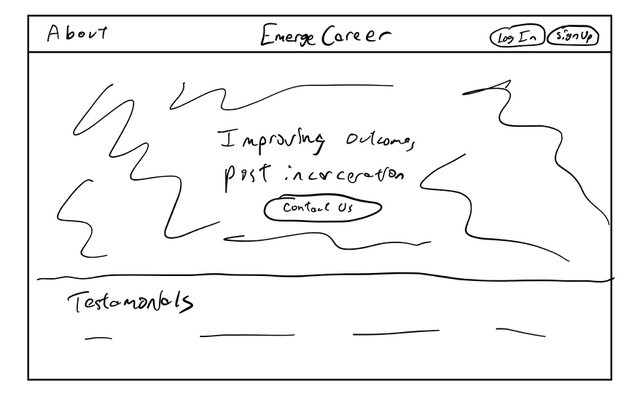 About
Emerge Career
Log In
Sign Up
Improving outcomes
post incarceration
Contact Us
Testamonials